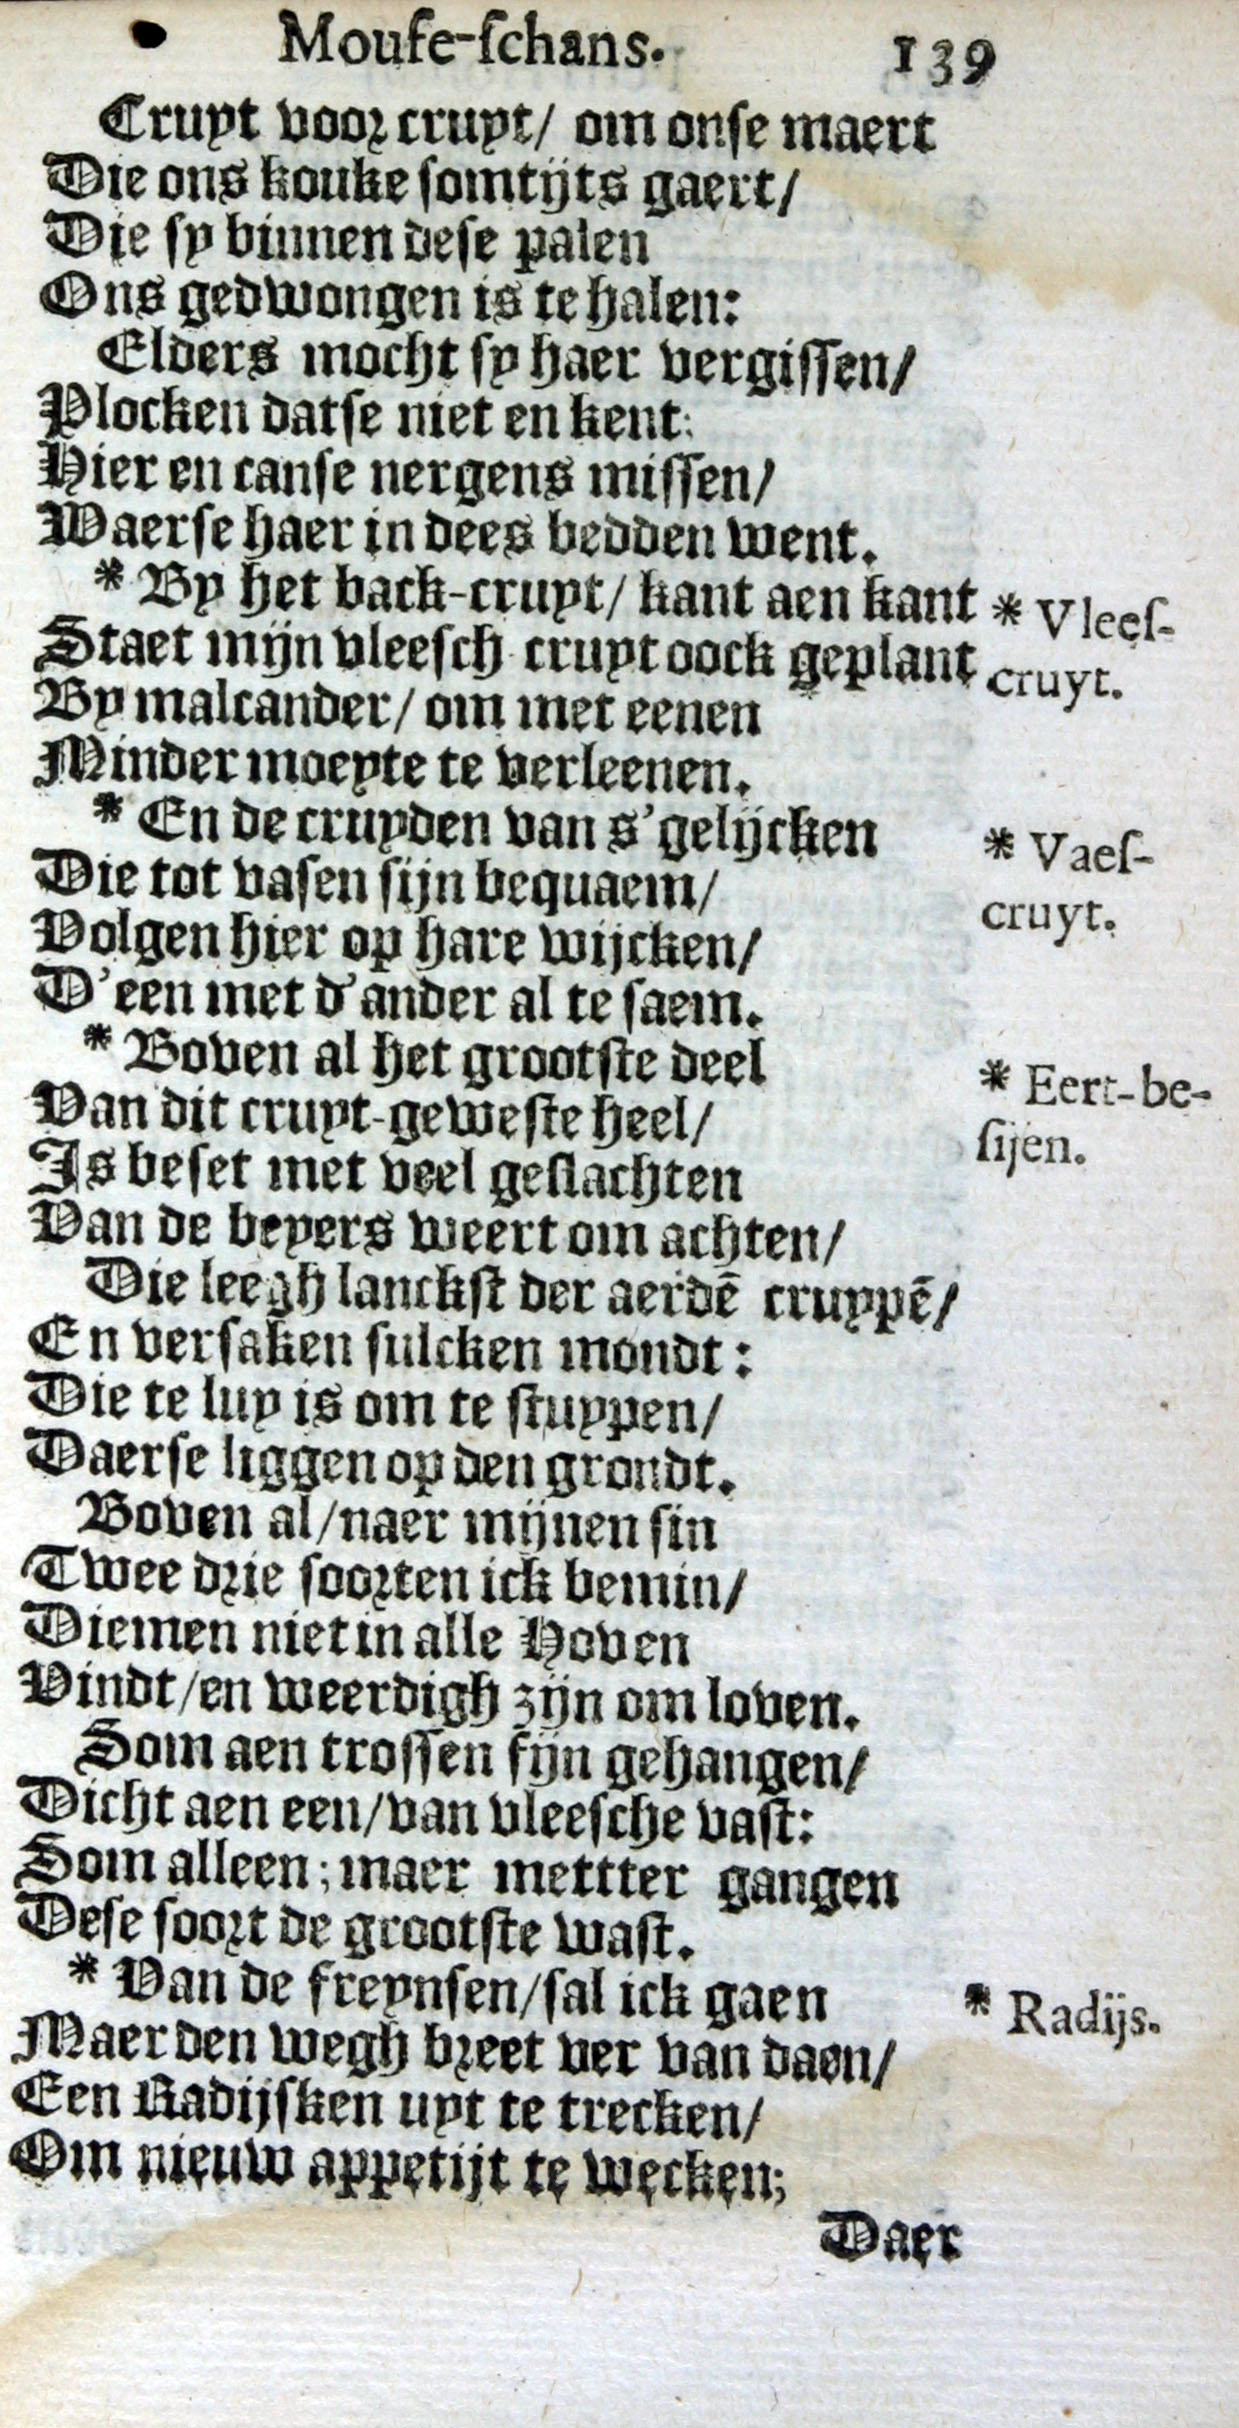 Mouſe-ſchans. 139
Cruyt voor cruyt/ om onſe maert
Die ons kouke ſomtijts gaert/
Die ſy binnen deſe palen
Ons gedwongen is te halen:
Elders mocht ſy haer vergiſſen/
Plocken datſe niet en kent:
Hier en canſe nergens miſſen/
Waerſe haer in dees bedden went.
* By het back-cruyt/ kant aen kant
* Vleeſ-
Staet mijn vleeſch cruyt oock geplant
cruyt.
By malcander/ om met eenen
Minder moeyte te verleenen.
* En de cruyden van s'gelijcken
* Vaeſ-
Die tot vaſen ſijn bequaem/
cruyt.
Volgen hier op hare wijcken/
D'een met d'ander al te ſaem.
* Boven al het grootſte deel
* Eert-be-
Van dit cruyt-geweſte heel/
ſijen.
Is beſet met veel geſlachten
Van de beyers weert om achten/
Die leegh lanckſt der aerdē cruypē/
En verſaken ſulcken mondt:
Die te luy is om te ſtuypen/
Daerſe liggen op den grondt.
Boven al/ naer mijnen ſin
Twee drie ſoorten ick bemin/
Diemen niet in alle Hoven
Vindt/ en weerdigh zijn om loven.
Som aen troſſen ſijn gehangen/
Dicht aen een/ van vleeſche vaſt:
Som alleen; maer mettter gangen
Deſe ſoort de grootſte waſt.
* Van de freynſen/ ſal ick gaen
* Radijs.
Maer den wegh breet ver van daen/
Een Radijſken uyt te trecken/
Om nieuw appetijt te wecken;
Daer